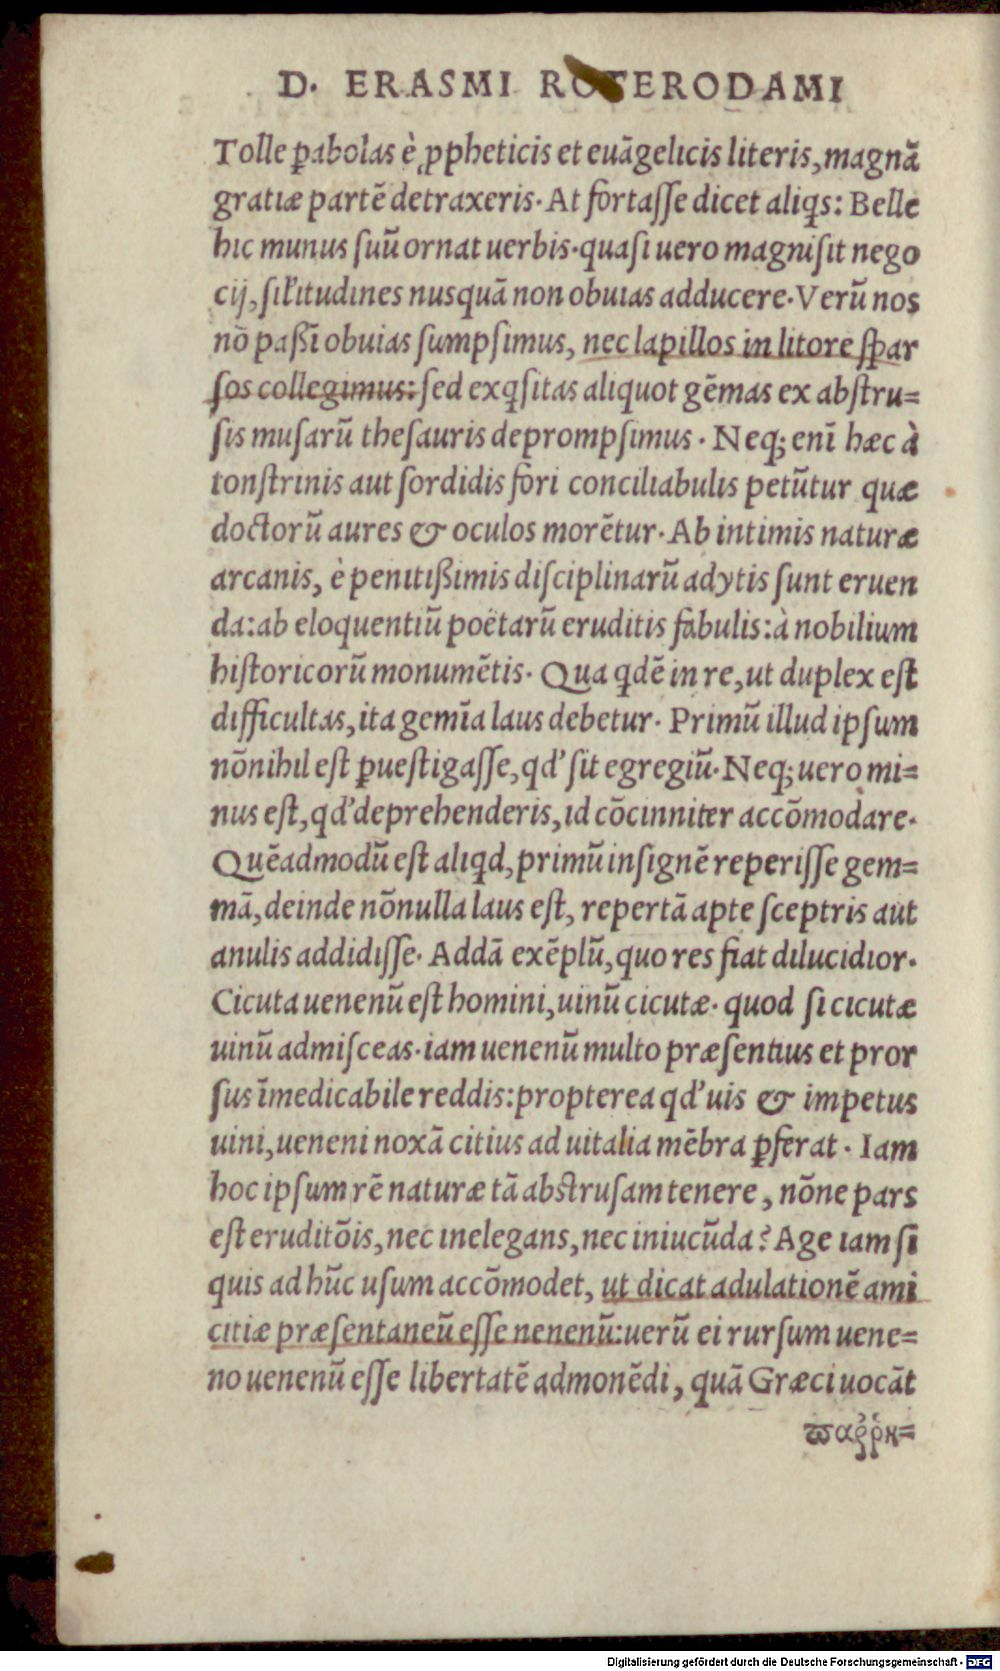 D. ERASMI ROTERODAMI
Tolle ꝑabolas è ꝓpheticis et euãgelicis literis, magnã
gratiæ partẽ detraxeris. At fortaſſe dicet aliqs: Belle
hic munus ſuũ ornat uerbis. quaſi uero magni ſit nego
cij, ſil'itudines nusquã non obuias adducere. Verũ nos
nõ paßĩ obuias ſumpſimus, nec lapillos in litore ſꝑar
ſos collegimus: ſed exqſitas aliquot gẽmas ex abſtru=
ſis muſarũ theſauris deprompſimus. Neq; enĩ hæc à
tonſtrinis aut ſordidis fori conciliabulis petũtur quæ
doctorũ aures & oculos morẽtur. Ab intimis naturæ
arcanis, è penitißimis diſciplinarũ adytis ſunt eruen
da: ab eloquentiũ poëtarũ eruditis fabulis: à nobilium
hiſtoricorũ monumẽtis. Qua qdẽ in re, ut duplex eſt
difficultas, ita gemĩa laus debetur. Primũ illud ipſum
nõnihil eſt ꝑueſtigaſſe, qd' ſit egregiũ. Neq; uero mi=
nus eſt, qd' deprehenderis, id cõcinniter accõmodare.
Quẽadmodũ eſt aliqd, primũ inſignẽ reperiſſe gem=
mã, deinde nõnulla laus eſt, repertã apte ſceptris aut
anulis addidiſſe. Addã exẽplũ, quo res fiat dilucidior.
Cicuta uenenũ eſt homini, uinũ cicutæ. quod ſi cicutæ
uinũ admiſceas. iam uenenũ multo præſentius et pror
ſus ĩmedicabile reddis: propterea qd' uis & impetus
uini, ueneni noxã citius ad uitalia mẽbra ꝑferat. Iam
hoc ipſum rẽ naturæ tã abſtruſam tenere, nõne pars
eſt eruditõis, nec inelegans, nec iniucũda? Age iam ſi
quis ad hũc uſum accõmodet, ut dicat adulationẽ ami
citiæ præſentaneũ eſſe nenenũ: uerũ ei rurſum uene=
no uenenũ eſſe libertatẽ admonẽdi, quã Græci uocãt
ϖαῤῥη=
Digitalisierung gefördert durch die Deutsche Forschungsgemeinschaft - DFG